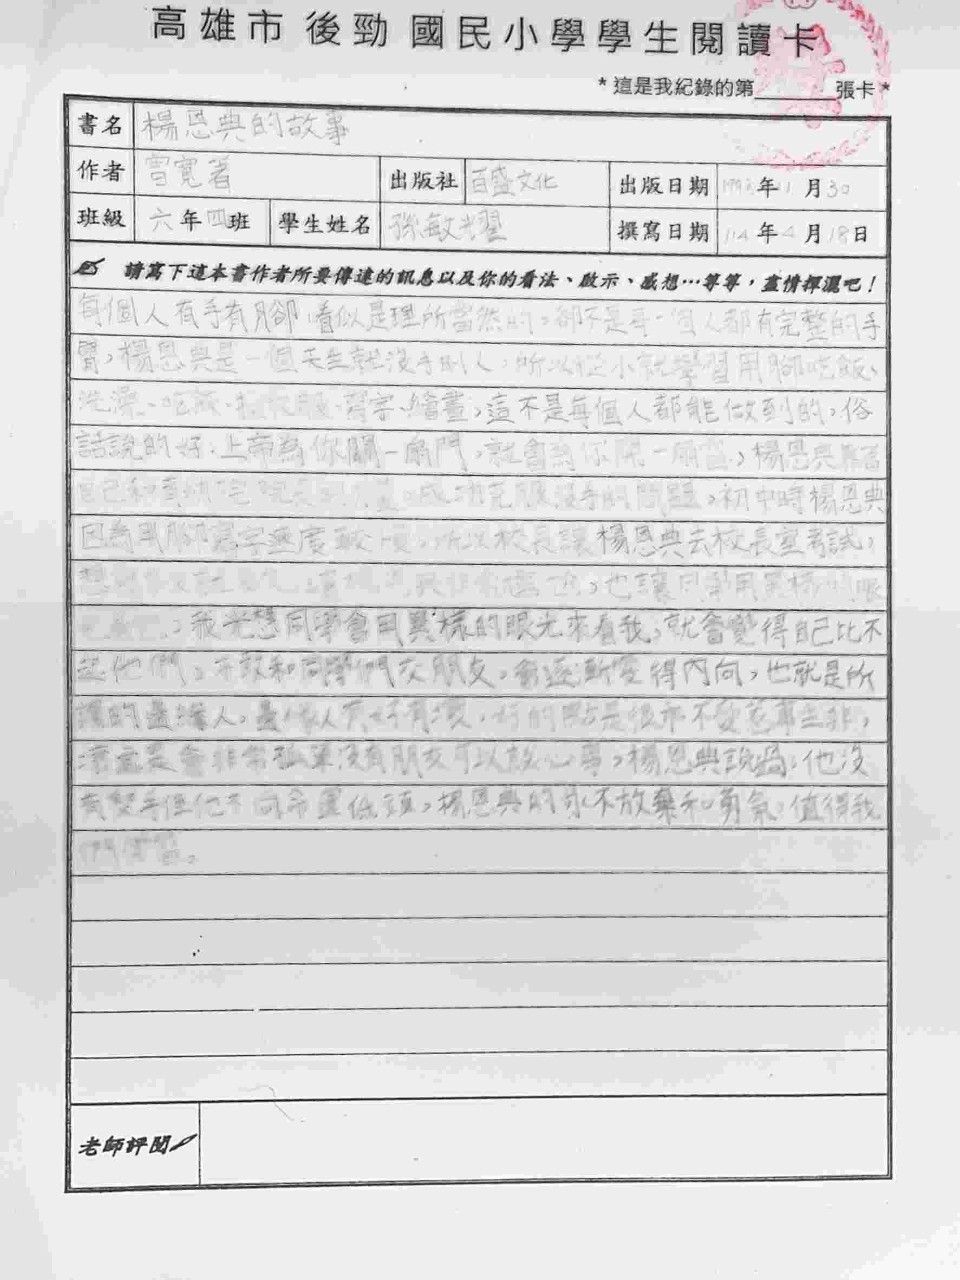 高雄市 後勁 國民小學學生閱讀卡
*這是我紀錄的第 張卡*
書名 楊恩典的故事
作者 曾寬著 出版社 百盛文化 出版日期 年11月30
班級 六年四班 學生姓名 孫敏光翟 撰寫日期 114年4月18日
請寫下這本書作者所要傳達的訊息以及你的看法、啟示、感想…等等,盡情揮灑吧!
每個人有手有腳,看似是理所當然的,卻不是每一個人都有完整的手
臂,楊恩典是一個天生就沒手的人,所以從小就學習用腳吃飯、
洗澡、吃飯、穿衣服、寫字、繪畫,這不是每個人都能做到的,俗
話說的好:上帝為你關一扇門,就會為你開一扇窗,楊恩典靠著
自己和 成功克服沒手的問題,初中時楊恩典
因為用腳寫字速度較慢,所以校長讓楊恩典去校長室考試,
也讓同學用異樣的眼
,我光想同學會用異樣的眼光來看我,就會覺得自己比不
起他們,不敢和同學們交朋友,會逐漸變得內向,也就是所
謂的邊緣人,邊緣人有好有壞,好的點是 不 惹事生非,
壞處是會非常孤單沒有朋友可以談心事,楊恩典說過:他沒
有雙手但他不向命運低頭,楊恩典的永不放棄和勇氣,值得我
們學習。
老師評閱